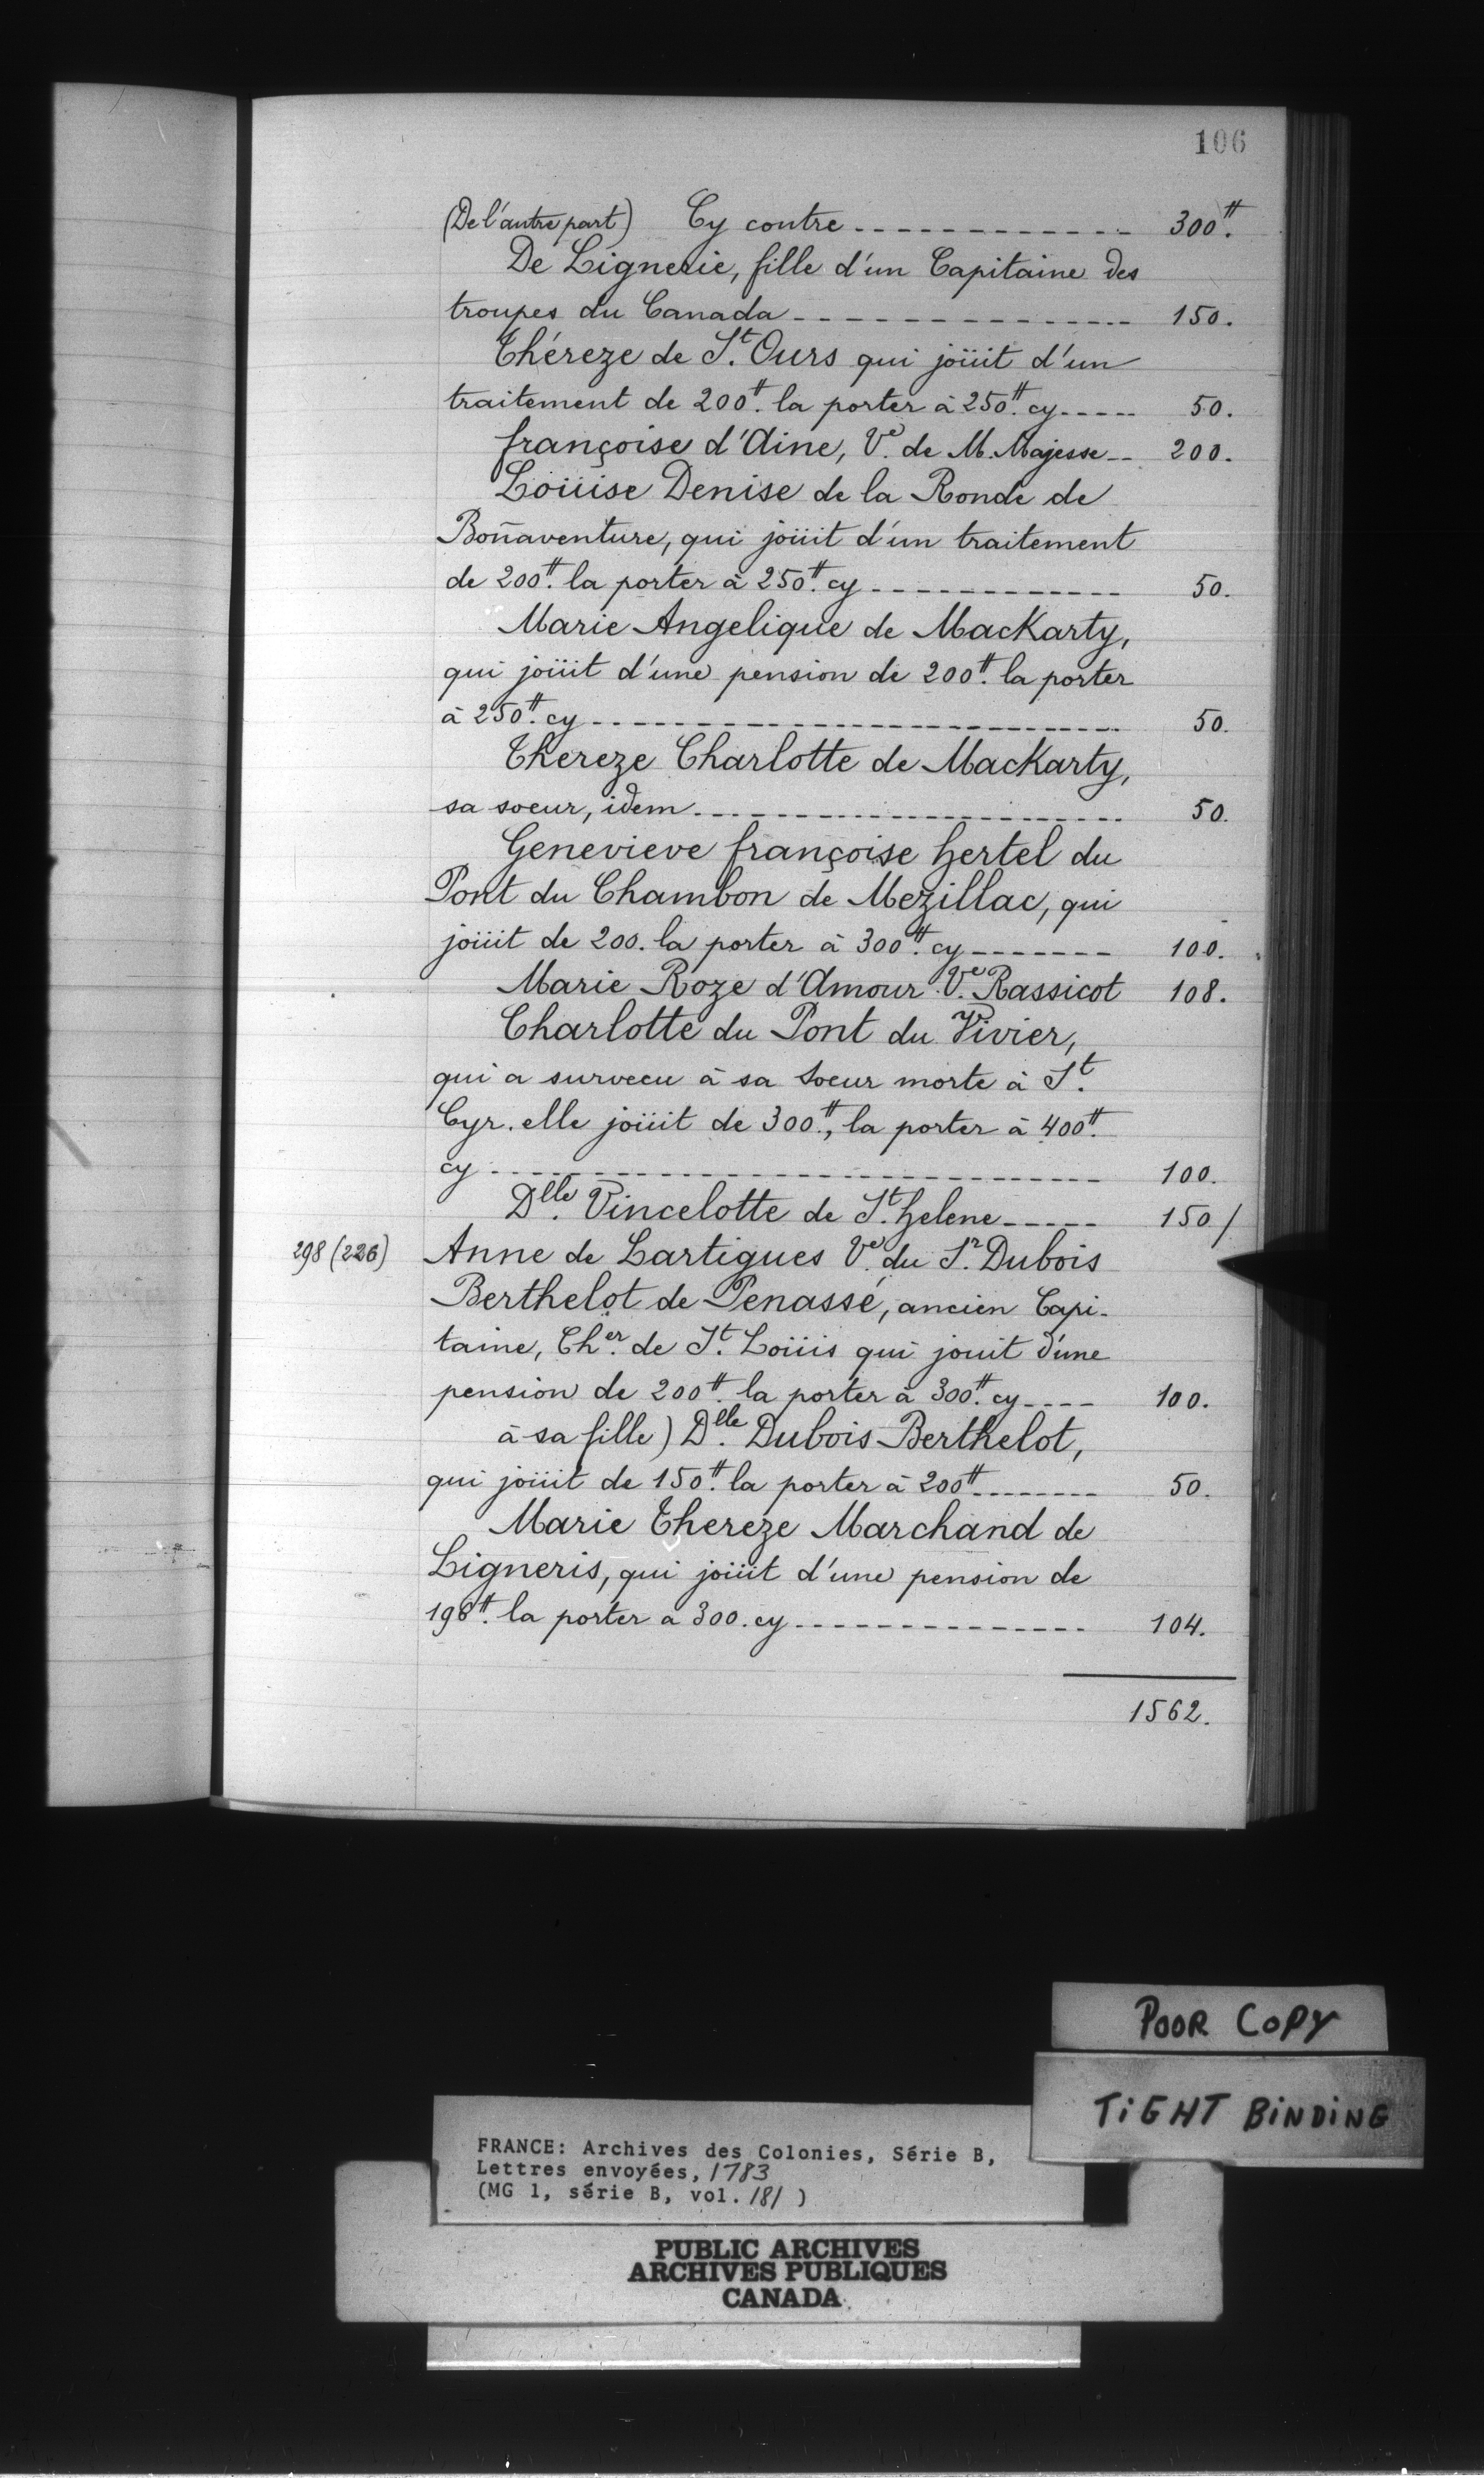 106
(De l'autre part) Cy contre ------------ 300#.
De Lignerie, fille d'un Capitaine des
troupes du Canada --------------- 150.
Théreze de St. Ours qui joüit d'un
traitement de 200#. la porter à 250#. cy ----- 50.
françoise d'Aine, Ve. de M. Majesse -- 200.
Loüise Denise de la Ronde de
Bon̄aventure, qui joüit d'un traitement
de 200#. la porter à 250#. cy ------------ 50.
Marie Angelique de MacKarty,
qui joüit d'une pension de 200#. la porter
à 250#. cy --------------------------- 50.
Thereze Charlotte de MacKarty,
sa soeur, idem ---------------------- 50.
Genevieve françoise hertel du
Pont du Chambon de Mezillac, qui
joüit de 200. la porter à 300#. cy ------- 100.
Marie Roze d'Amour Ve. Rassicot 108.
Charlotte du Pont du Vivier,
qui a survecu à sa Soeur morte à St.
Cyr. elle joüit de 300#., la porter à 400#.
cy ------------------------------- 100.
Dlle. Vincelotte de St. helene ----- 150 /
298 (226) Anne de Lartigues Ve. du Sr. Dubois
Berthelot de Penassé, ancien Capi-
taine, Cher. de St. Loüis qui jouit d'une
pension de 200#. la porter à 300#. cy ---- 100.
à sa fille) Dlle. Dubois Berthelot,
qui joüit de 150#. la porter à 200# ------- 50.
Marie Thereze Marchand de
Ligneris, qui joüit d'une pension de
196#. la porter a 300. cy --------------- 104.
1562.
POOR COPY
TIGHT BINDING
FRANCE: Archives des Colonies, Série B,
Lettres envoyées, 1783
(MG 1, série B, vol. 181 )
PUBLIC ARCHIVES
ARCHIVES PUBLIQUES
CANADA